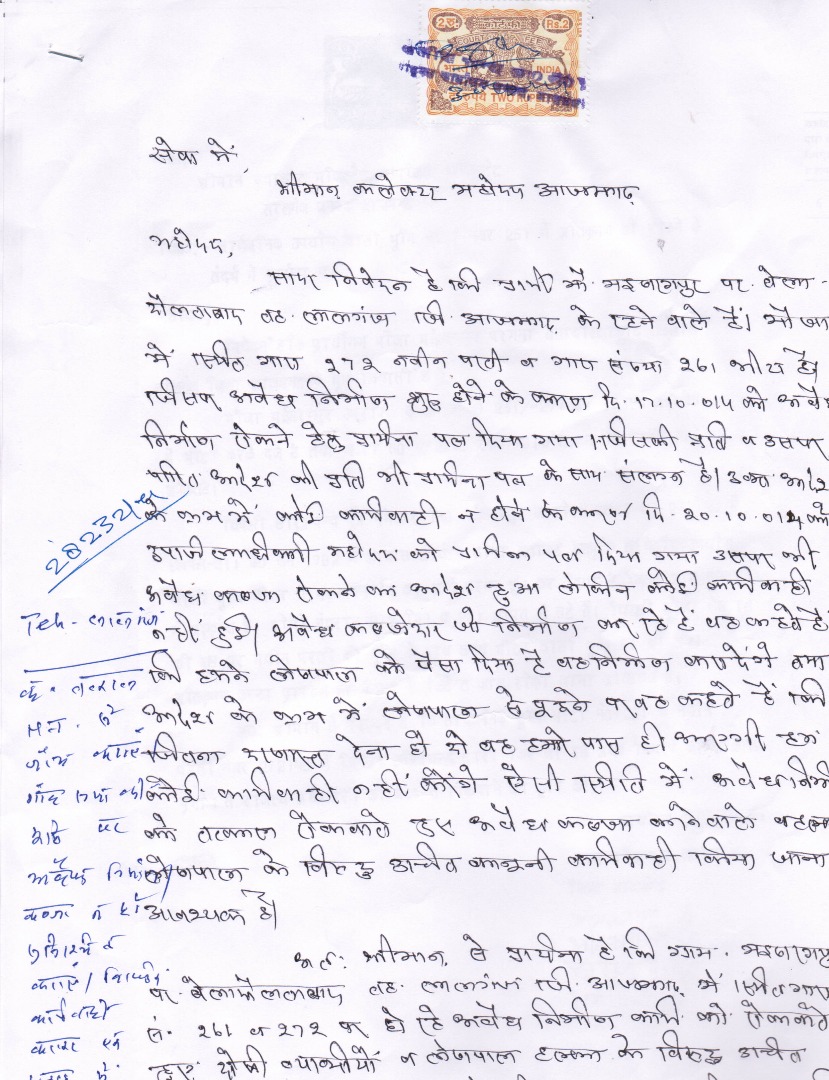 2रु. Rs.2
INDIA
रुपये TWO RUPEES
सेवा में,
श्रीमान कलेक्टर महोदय आजमगढ़
महोदय,
सादर निवेदन है कि प्रार्थी मौ. भइनागपुर पर. बेला-
दौलताबाद तह. लालगंज जि. आजमगढ़ के रहने वाले हैं। मौजा
में स्थित गाटा २७२ नवीन परती व गाटा संख्या २६१ भीटा है।
जिसपर अवैध निर्माण शुरू होने के कारण दि. 17.10.014 को अवैध
निर्माण रोकने हेतु प्रार्थना पत्र दिया गया। जिसकी प्रति व उसपर
पारित आदेश की प्रति भी प्रार्थना पत्र के साथ संलग्न है। उक्त आदेश
के क्रम में कोई कार्यवाही न होने के कारण दि. 20.10.014 को
उपजिलाधिकारी महोदय को प्रार्थना पत्र दिया गया उसपर भी
अवैध कब्जा रोकने का आदेश हुआ लेकिन कोई कार्यवाही
नहीं हुई। अवैध कब्जेदार जो निर्माण कर रहे हैं वह कहते हैं
कि हमने लेखपाल को पैसा दिया है वह निर्माण करा देंगे तथा
आदेश के क्रम में लेखपाल से पूछने पर वह कहते हैं कि
जितना दरखास्त देना हो दो वह हमारे पास ही आएगी हम
कोई कार्यवाही नहीं करेंगे ऐसी स्थिति में अवैध निर्माण
को तत्काल रोकवाते हुए अवैध कब्जा करने वाले व हल्का
लेखपाल के विरुद्ध उचित कानूनी कार्यवाही किया जाना
आवश्यक है।
अतः श्रीमान से प्रार्थना है कि ग्राम भइनागपुर
पर. बेलादौलताबाद तह. लालगंज जि. आजमगढ़ में स्थित गाटा
सं. २६१ व २७२ पर हो रहे अवैध निर्माण कार्य को रोकवाते
हुए दोषी व्यक्तियों व लेखपाल हल्का के विरुद्ध उचित
Teh- लालगंज
जांच कराएं
पर
कब्जा न हो
कराएं।
कार्यवाही